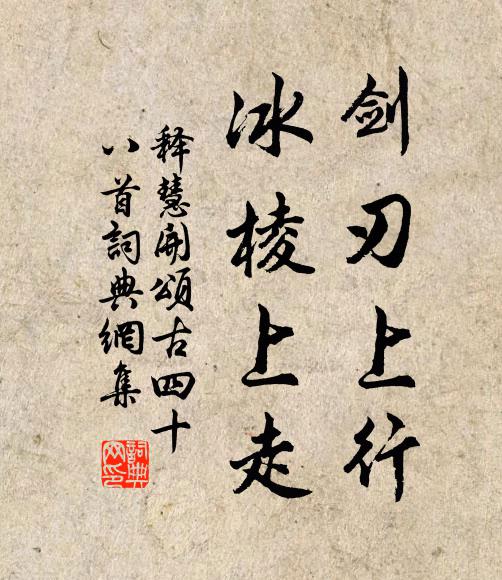 剑刃上行
冰棱上走
释慧开颂古四十
八首词典网集
詞典
网印